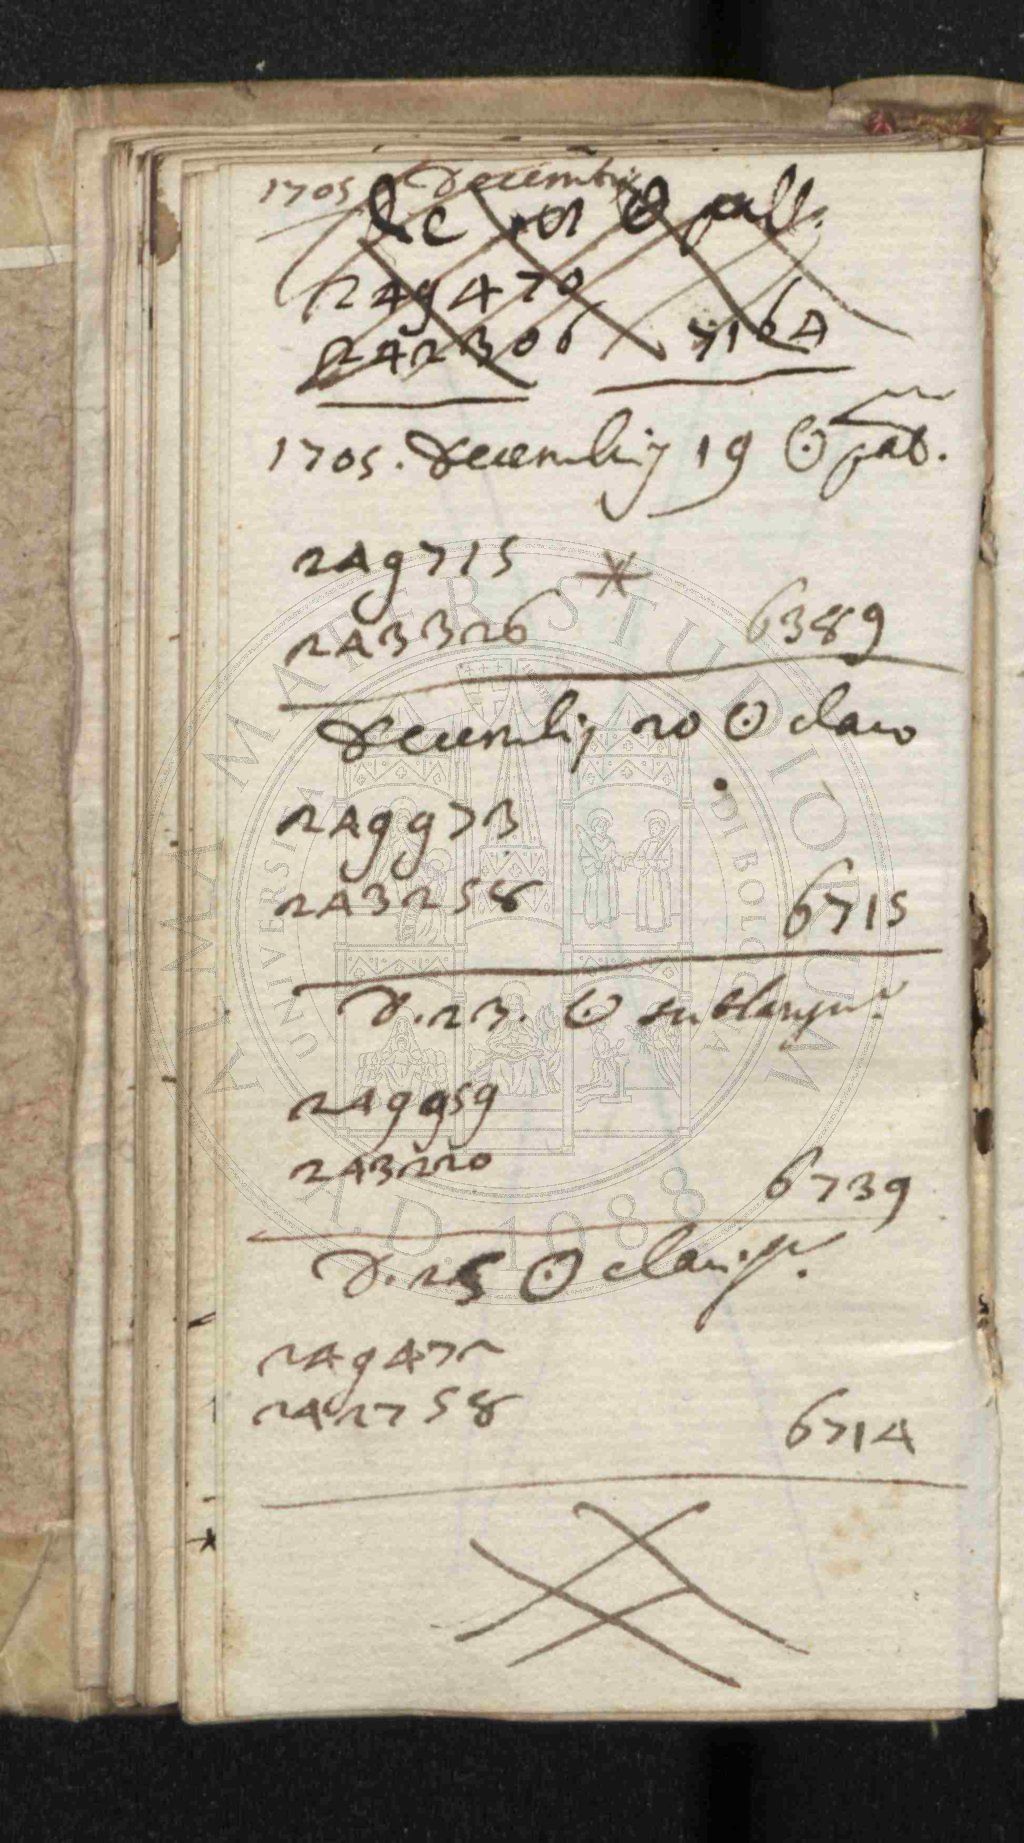 1705 Decembris
☉ pall.
249470
242306 7164
1705. Decembris 19 ☉
249715
243326 6389
Decembris 20 ☉ claro
249973
243258 6715
D. 23. ☉
249959
243220 6739
D. 25 ☉
249472
242758 6714
ALMA MATER STUDIORUM
UNIVERSITÀ DI BOLOGNA
A.D. 1088